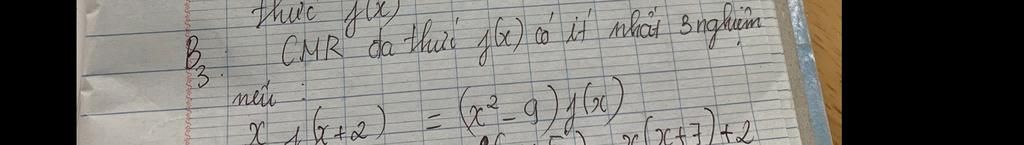 thức f(x)
B3. CMR đa thức f(x) có ít nhất 3 nghiệm
nếu :
x f(x+2) = (x² - 9) f(x)
x(x+7)+2